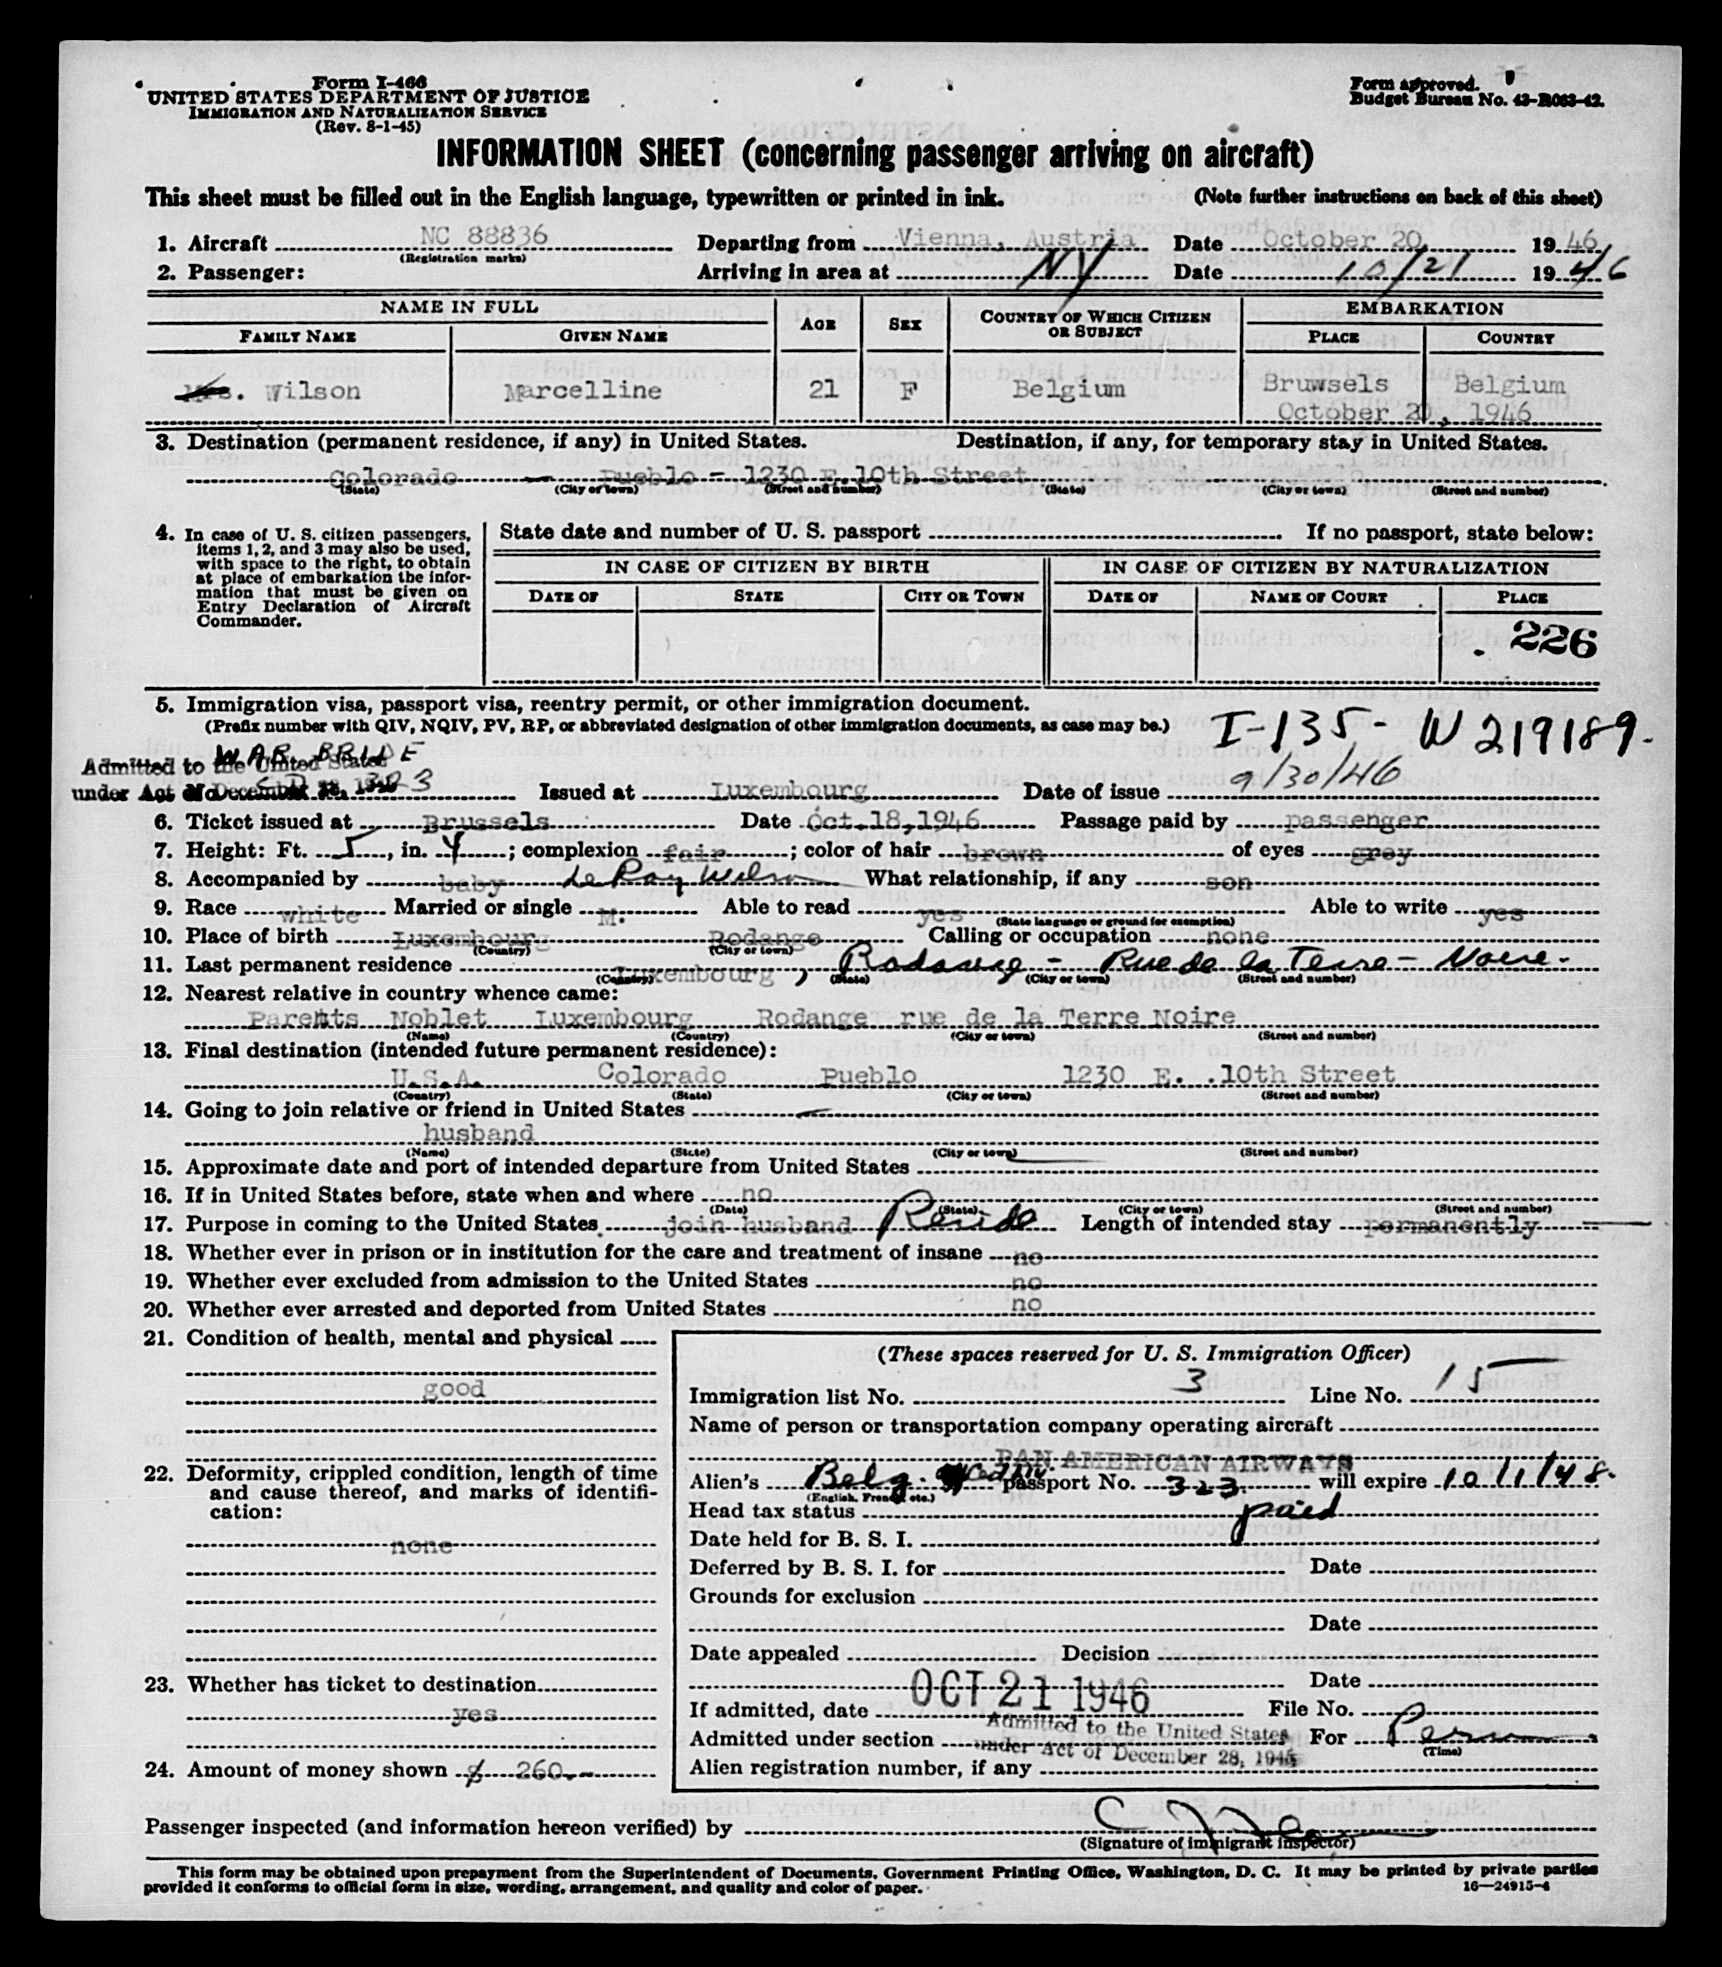 Form I-466
UNITED STATES DEPARTMENT OF JUSTICE
IMMIGRATION AND NATURALIZATION SERVICE
(Rev. 8-1-45)
Form approved.
Budget Bureau No. 43-R063-42.
INFORMATION SHEET (concerning passenger arriving on aircraft)
This sheet must be filled out in the English language, typewritten or printed in ink. (Note further instructions on back of this sheet)
1. Aircraft NC 88836 Departing from Vienna, Austria Date October 20, 1946
(Registration marks)
2. Passenger: Arriving in area at NY Date 10/21 1946
NAME IN FULL AGE SEX COUNTRY OF WHICH CITIZEN OR SUBJECT EMBARKATION
FAMILY NAME GIVEN NAME PLACE COUNTRY
Mrs. Wilson Marcelline 21 F Belgium Bruwsels Belgium
October 20, 1946
3. Destination (permanent residence, if any) in United States. Destination, if any, for temporary stay in United States.
Colorado — Pueblo - 1230 E. 10th Street
(State) (City or town) (Street and number) (State) (City or town) (Street and number)
4. In case of U. S. citizen passengers, items 1, 2, and 3 may also be used, with space to the right, to obtain at place of embarkation the information that must be given on Entry Declaration of Aircraft Commander.
State date and number of U. S. passport If no passport, state below:
IN CASE OF CITIZEN BY BIRTH IN CASE OF CITIZEN BY NATURALIZATION
DATE OF STATE CITY OR TOWN DATE OF NAME OF COURT PLACE
226
5. Immigration visa, passport visa, reentry permit, or other immigration document.
(Prefix number with QIV, NQIV, PV, RP, or abbreviated designation of other immigration documents, as case may be.) I-135- W 219189.
WAR BRIDE
Admitted to the United States
under Act of December 28, 1945 323 Issued at Luxembourg Date of issue 9/30/46
6. Ticket issued at Brussels Date Oct.18,1946 Passage paid by passenger
7. Height: Ft. 5, in. 4; complexion fair; color of hair brown of eyes grey
8. Accompanied by baby LeRoy Wilson What relationship, if any son
9. Race white Married or single M. Able to read yes Able to write yes
(State language or ground for exemption)
10. Place of birth Luxembourg Rodange Calling or occupation none
(Country) (City or town)
11. Last permanent residence Luxembourg, Rodange - Rue de la Terre - Noire.
(Country) (State) (City or town) (Street and number)
12. Nearest relative in country whence came:
Parents Noblet Luxembourg Rodange rue de la Terre Noire
(Name) (Country) (City or town) (Street and number)
13. Final destination (intended future permanent residence):
U.S.A. Colorado Pueblo 1230 E. .10th Street
(Country) (State) (City or town) (Street and number)
14. Going to join relative or friend in United States —
husband
(Name) (State) (City or town) (Street and number)
15. Approximate date and port of intended departure from United States
16. If in United States before, state when and where no
(Date) (State) (City or town) (Street and number)
17. Purpose in coming to the United States join husband Reside Length of intended stay permanently
18. Whether ever in prison or in institution for the care and treatment of insane no
19. Whether ever excluded from admission to the United States no
20. Whether ever arrested and deported from United States no
21. Condition of health, mental and physical
good
22. Deformity, crippled condition, length of time and cause thereof, and marks of identification:
none
23. Whether has ticket to destination
yes
24. Amount of money shown $ 260.-
(These spaces reserved for U. S. Immigration Officer)
Immigration list No. 3 Line No. 15
Name of person or transportation company operating aircraft
PAN AMERICAN AIRWAYS
Alien's Belg. passport No. 323. will expire 10/1/48.
(English, French, etc.)
Head tax status paid
Date held for B. S. I.
Deferred by B. S. I. for Date
Grounds for exclusion
Date
Date appealed Decision
Date
If admitted, date OCT 21 1946 File No.
Admitted under section Admitted to the United States For Perm
under Act of December 28, 1945 (Time)
Alien registration number, if any
Passenger inspected (and information hereon verified) by
(Signature of immigrant inspector)
This form may be obtained upon prepayment from the Superintendent of Documents, Government Printing Office, Washington, D. C. It may be printed by private parties
provided it conforms to official form in size, wording, arrangement, and quality and color of paper. 16—24915-4